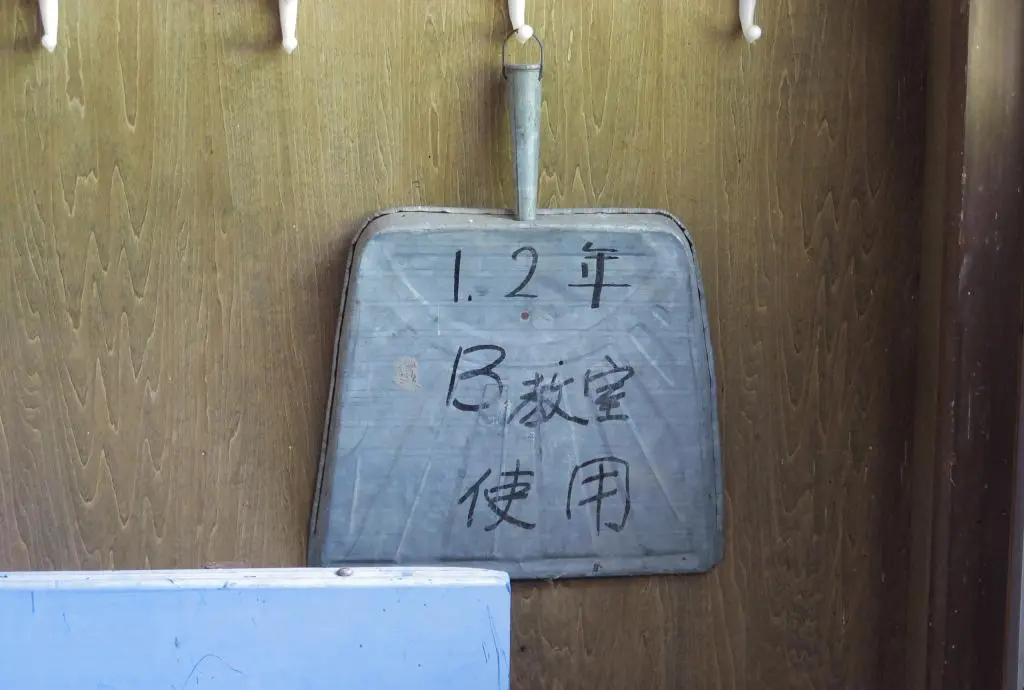 1.2年
B教室
使用